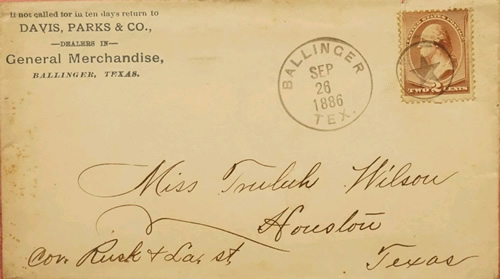 If not called for in ten days return to
DAVIS, PARKS & CO.,
—DEALERS IN—
General Merchandise,
BALLINGER, TEXAS.
BALLINGER
SEP
26
1886
TEX.
UNITED STATES POSTAGE
TWO 2 CENTS
Miss Wilson
Houston
Cor. Rusk & La. st. Texas